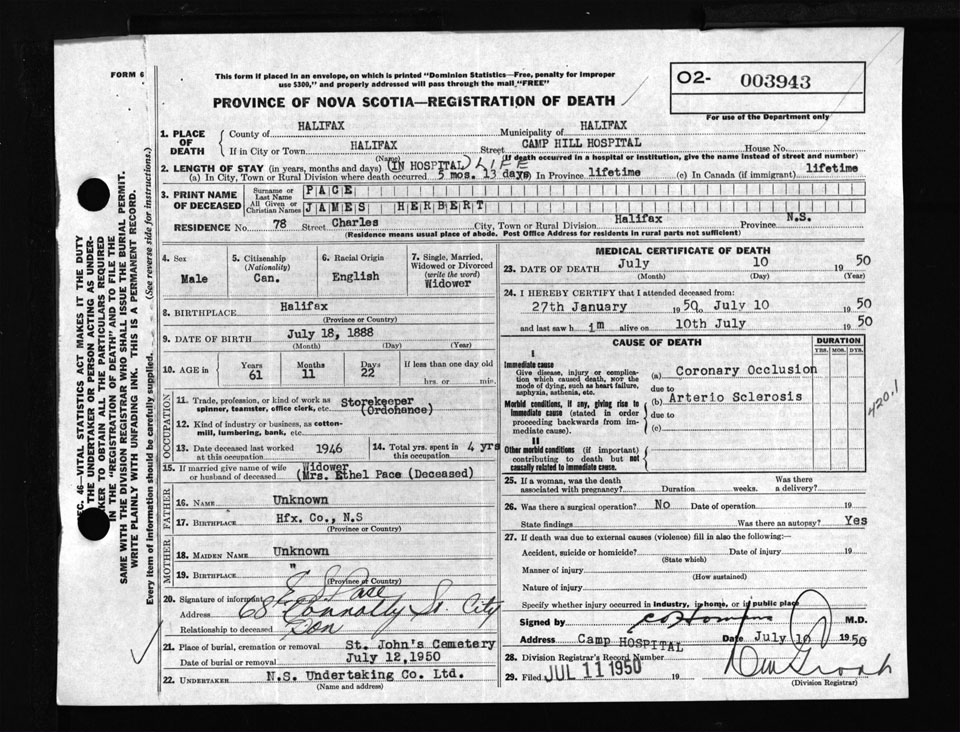 FORM 6
This form if placed in an envelope, on which is printed "Dominion Statistics—Free, penalty for improper
use $300," and properly addressed will pass through the mail "FREE"
O2- 003943
For use of the Department only
PROVINCE OF NOVA SCOTIA—REGISTRATION OF DEATH
1. PLACE OF DEATH
County of HALIFAX Municipality of HALIFAX
If in City or Town HALIFAX Street CAMP HILL HOSPITAL House No.
(Name) (If death occurred in a hospital or institution, give the name instead of street and number)
2. LENGTH OF STAY (in years, months and days) (IN HOSPITAL) LIFE
(a) In City, Town or Rural Division where death occurred 5 mos. 13 days (b) In Province lifetime (c) In Canada (if immigrant) lifetime
3. PRINT NAME OF DECEASED
Surname or Last Name PACE
All Given or Christian Names JAMES HERBERT
RESIDENCE No. 78 Street Charles City, Town or Rural Division Halifax Province N.S.
(Residence means usual place of abode. Post Office Address for residents in rural parts not sufficient)
4. Sex Male
5. Citizenship (Nationality) Can.
6. Racial Origin English
7. Single, Married, Widowed or Divorced (write the word) Widower
8. BIRTHPLACE Halifax
(Province or Country)
9. DATE OF BIRTH July 18, 1888
(Month) (Day) (Year)
10. AGE in Years 61 Months 11 Days 22 If less than one day old
hrs. or min.
OCCUPATION
11. Trade, profession, or kind of work as spinner, teamster, office clerk, etc. Storekeeper
(Ordohence)
12. Kind of industry or business, as cotton-mill, lumbering, bank, etc.
13. Date deceased last worked at this occupation 1946
14. Total yrs. spent in this occupation 4 yrs
15. If married give name of wife or husband of deceased Widower
(Mrs. Ethel Pace (Deceased)
FATHER
16. NAME Unknown
17. BIRTHPLACE Hfx. Co., N.S
(Province or Country)
MOTHER
18. MAIDEN NAME Unknown
19. BIRTHPLACE "
(Province or Country)
20. Signature of informant E S Pace
Address 68 Connolly St City
Relationship to deceased Son
21. Place of burial, cremation or removal St. John's Cemetery
Date of burial or removal July 12,1950
22. UNDERTAKER N.S. Undertaking Co. Ltd.
(Name and address)
MEDICAL CERTIFICATE OF DEATH
23. DATE OF DEATH July 10 1950
(Month) (Day) (Year)
24. I HEREBY CERTIFY that I attended deceased from:
27th January 1950 to July 10 1950
and last saw h im alive on 10th July 1950
CAUSE OF DEATH
DURATION
YRS. MOS. DYS.
I
Immediate cause
Give disease, injury or complication which caused death, NOT the mode of dying, such as heart failure, asphyxia, asthenia, etc.
(a) Coronary Occlusion
due to
Morbid conditions, if any, giving rise to immediate cause (stated in order proceeding backwards from immediate cause).
(b) Arterio Sclerosis
due to
(c)
420.1
II
Other morbid conditions (if important) contributing to death but not causally related to immediate cause.
25. If a woman, was the death associated with pregnancy? Duration weeks. Was there a delivery?
26. Was there a surgical operation? No Date of operation 19
State findings Was there an autopsy? Yes
27. If death was due to external causes (violence) fill in also the following:—
Accident, suicide or homicide? Date of injury 19
(State which)
Manner of injury
(How sustained)
Nature of injury
Specify whether injury occurred in industry, in home, or in public place
Signed by M.D.
Address Camp HOSPITAL Date July 10 1950
28. Division Registrar's Record Number
29. Filed JUL 11 1950 19
(Division Registrar)
SEC. 46—VITAL STATISTICS ACT MAKES IT THE DUTY
THE UNDERTAKER OR PERSON ACTING AS UNDER-
TAKER TO OBTAIN ALL THE PARTICULARS REQUIRED
IN THE "REGISTRATION OF DEATH" AND TO FILE THE
SAME WITH THE DIVISION REGISTRAR WHO SHALL ISSUE THE BURIAL PERMIT.
WRITE PLAINLY WITH UNFADING INK. THIS IS A PERMANENT RECORD.
Every item of information should be carefully supplied. (See reverse side for instructions.)